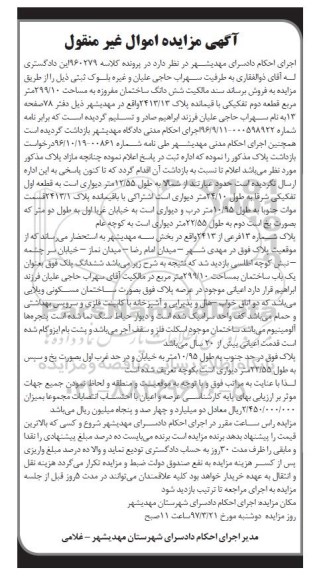 آگهی مزایده اموال غیر منقول
اجرای احکام دادسرای مهدیشهر در نظر دارد در پرونده کلاسه ۹۶۰۲۷۹این دادگستری
له آقای ذوالفقاری به طرفیت سهراب حاجی علیان و غیره بلوک ثبتی ذیل را از طریق
مزایده به فروش برساند سند مالکیت شش دانگ ساختمان مفروزه به مساحت ۲۹۹/۱۰متر
مربع قطعه دوم تفکیکی با قیمانده پلاک ۲۴۱۳/۱۳واقع در مهدیشهر ذیل دفتر ۷۸صفحه
۱۳به نام سهراب حاجی علیان فرزند ابراهیم صادر و تسلیم گردیده است که برابر نامه
شماره ۹۶/۹/۱۱-۰۰۰۵۹۸۹۲۲اجرای احکام مدنی دادگاه مهدیشهر بازداشت گردیده است
همچنین اجرای احکام مدنی مهدیشهر طی نامه شماره ۹۶/۱۰/۱۹-۰۰۸۶۱درخواست
بازداشت پلاک مذکور را نموده که اداره ثبت در پاسخ اعلام نموده چنانچه مازاد پلاک مذکور
مورد نظر می‌باشد اعلام تا نسبت به بازداشت آن اقدام گردد که تا کنون پاسخی به این اداره
ارسال نگردیده است حدود عبارتند از شمالا به طول ۱۲/۵۵متر دیواری است به قطعه اول
تفکیکی شرقا به طول ۲۴/۱۰متر دیواری است اشتراکی با باقیمانده پلاک ۲۴۱۳/۱قسمت
موات جنوبا به طول ۱۰/۹۵متر درب و دیواری است به خیابان غربا اول به طول دو متر که
بصورت پخ است دوم به طول ۲۲/۵۵متر دیواری است به کوچه عام
پلاک شماره ۱۳فرعی از ۲۴۱۳واقع در بخش سه مهدیشهر به استحضار می‌رساند که از
موقعیت پلاک فوق در مهدی شهر –میدان امام رضا –میدان نماز –خیابان سر چشمه
–نبش کوچه اطلسی بازدید شد که نتیجه به شرح زیر می‌باشد ششدانگ پلاک فوق بعنوان
یک باب ساختمان بمساحت ۲۹۹/۱۰متر مربع در مالکیت آقای سهراب حاجی علیان فرزند
ابراهیم قرار دارد اعیانی موجود در عرصه پلاک فوق بصورت ساختمان مسکونی ویلایی
می‌باشد که دو اتاق خواب هال و پذیرایی و آشپزخانه با کابینت فلزی و سرویس بهداشتی
و حمام می‌باشد کف واحد سرامیک شده است و دیوار حیاط سنگ نما شده است پنجره‌ها
آلومینیوم می‌باشد ساختمان موجود اسکلت فلز و سقف آجر می‌باشد و پشت بام ایزوگام شده
است قدمت اعیانی بیش از ۲۰ سال می‌باشد
پلاک فوق در حد جنوب به طول ۱۰/۹۵متر به خیابان و در حد غرب اول بصورت پخ و سپس
بطول ۲۲/۵۵متر دیواری است بکوچه تعریف شده است
لذا با عنایت به مراتب فوق و با توجه به موقعیت و منطقه و لحاظ نمودن جمیع جهات
موثر بر ارزیابی بهای پایه کارشناسی عرصه و اعیان با احتساب انشعابات مجموعا بمیزان
۲/۴۵۰/۰۰۰/۰۰۰ریال معادل دو میلیارد و چهار صد و پنجاه میلیون ریال می‌باشد
مزایده راس ساعت مقرر در اجرای احکام دادسرای مهدیشهر شروع و کسی که بالاترین
قیمت را پیشنهاد بدهد برنده مزایده است برنده می‌بایست ده درصد مبلغ پیشنهادی را نقدا
و مابقی را ظرف مدت ۳۰روز به حساب دادگستری تودیع نماید و الا ده درصد مبلغ واریزی
پس از کسر هزینه مزایده به نفع صندوق دولت ضبط و مزایده تکرار می‌گردد هزینه نقل
و انتقال به عهده خریدار خواهد بود کلیه علاقمندان می‌توانند در مدت ۵روز قبل از جلسه
مزایده به اجرای مراجعه تا ترتیب بازدید شود
مکان مزایده: اجرای احکام دادسرای شهرستان مهدیشهر
روز مزایده دوشنبه مورخ ۹۷/۳/۲۱ساعت ۱۱صبح
مدیر اجرای احکام دادسرای شهرستان مهدیشهر – غلامی